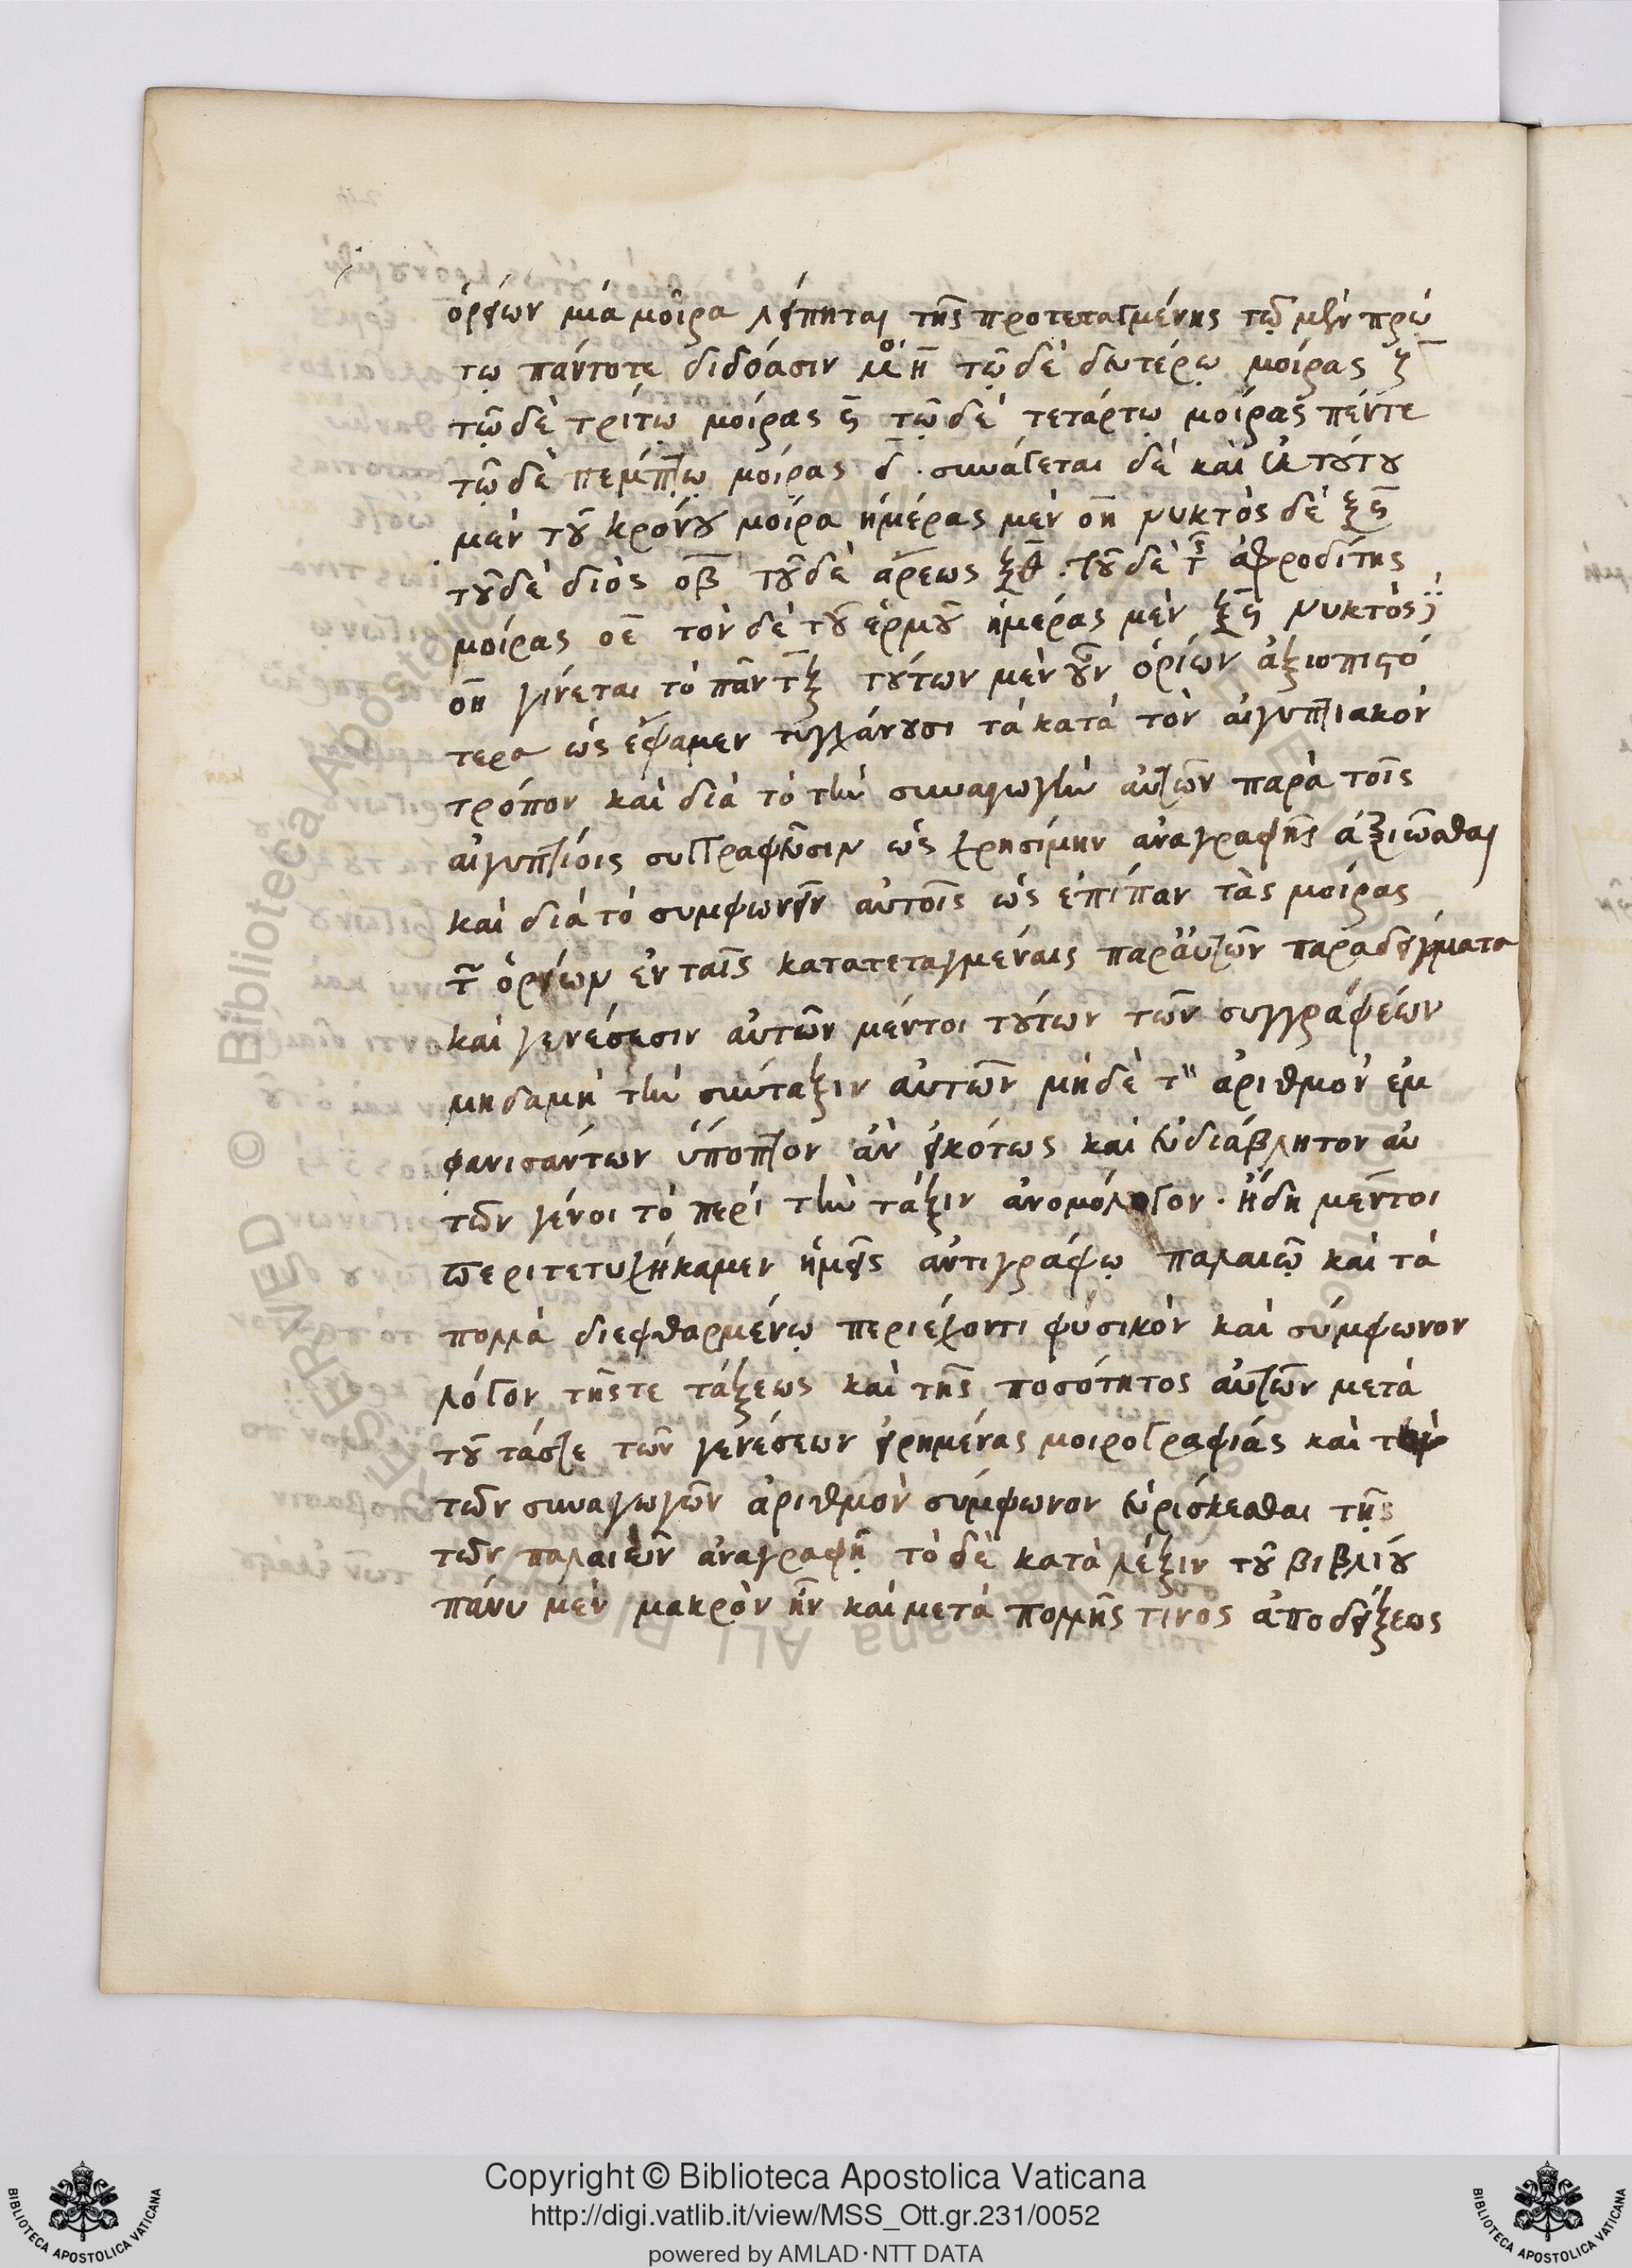 ὁρίων μιᾶ μοῖρα λείπηται τῆς προτεταγμένης τῷ μὲν πρώ
τῳ πάντοτε διδόασιν μο η τῷ δὲ δευτέρῳ μοίρας ζ
τῷ δὲ τρίτῳ μοίρας ς τῷ δὲ τετάρτῳ μοίρας πέντε
τῷ δὲ πέμπτῳ μοίρας δ. συνάγεται δὲ καὶ ἐκ τούτου
μὲν τοῦ κρόνου μοῖρα ἡμέρας μὲν οη νυκτὸς δὲ ξς
τοῦ δὲ διὸς οβ τοῦ δὲ ἄρεως ξθ. τοῦ δὲ τῆς ἀφροδίτης
μοίρας οε τὸν δὲ τοῦ ἑρμοῦ ἡμέρας μὲν ξς νυκτὸς
οη γίνεται τὸ πᾶν τξ τούτων μὲν οὖν ὁρίων ἀξιοπιστό
τερα ὡς ἔφαμεν τυγχάνουσι τὰ κατὰ τὸν αἰγυπτιακὸν
τρόπον καὶ διὰ τὸ τὴν συναγωγὴν αὐτῶν παρὰ τοῖς
αἰγυπτίοις συγγραφεῦσιν ὡς χρησίμην ἀναγραφῆς ἀξιῶσθαι
καὶ διὰ τὸ συμφωνεῖν αὐτοῖς ὡς ἐπίπαν τὰς μοίρας
τῶν ὁρίων ἐν ταῖς κατατεταγμέναις παρ' αὐτῶν παραδείγματα
καὶ γενέσεσιν αὐτῶν μέντοι τούτων τῶν συγγραφέων
μηδαμὴ τὴν σύνταξιν αὐτῶν μηδὲ τὸν ἀριθμὸν ἐμ
φανισάντων ὕποπτον ἂν εἰκότως καὶ εὐδιάβλητον αὐ
τῶν γένοι τὸ περὶ τὴν τάξιν ἀνομόλογον. ἤδη μέντοι
περιτετυχήκαμεν ἡμεῖς ἀντιγράφῳ παλαιῷ καὶ τὰ
πολλὰ διεφθαρμένῳ περιέχοντι φυσικὸν καὶ σύμφωνον
λόγον τῆς τε τάξεως καὶ τῆς ποσότητος αὐτῶν μετὰ
τοῦ τάς τε τῶν γενέσεων εἰρημένας μοιρογραφίας καὶ τὸν
τῶν συναγωγῶν ἀριθμὸν σύμφωνον εὑρίσκεσθαι τῇς
τῶν παλαιῶν ἀναγραφῇ τὸ δὲ κατὰ λέξιν τοῦ βιβλίου
πάνυ μὲν μακρὸν ἦν καὶ μετὰ πολλῆς τινος ἀποδείξεως
Copyright © Biblioteca Apostolica Vaticana
http://digi.vatlib.it/view/MSS_Ott.gr.231/0052
powered by AMLAD·NTT DATA